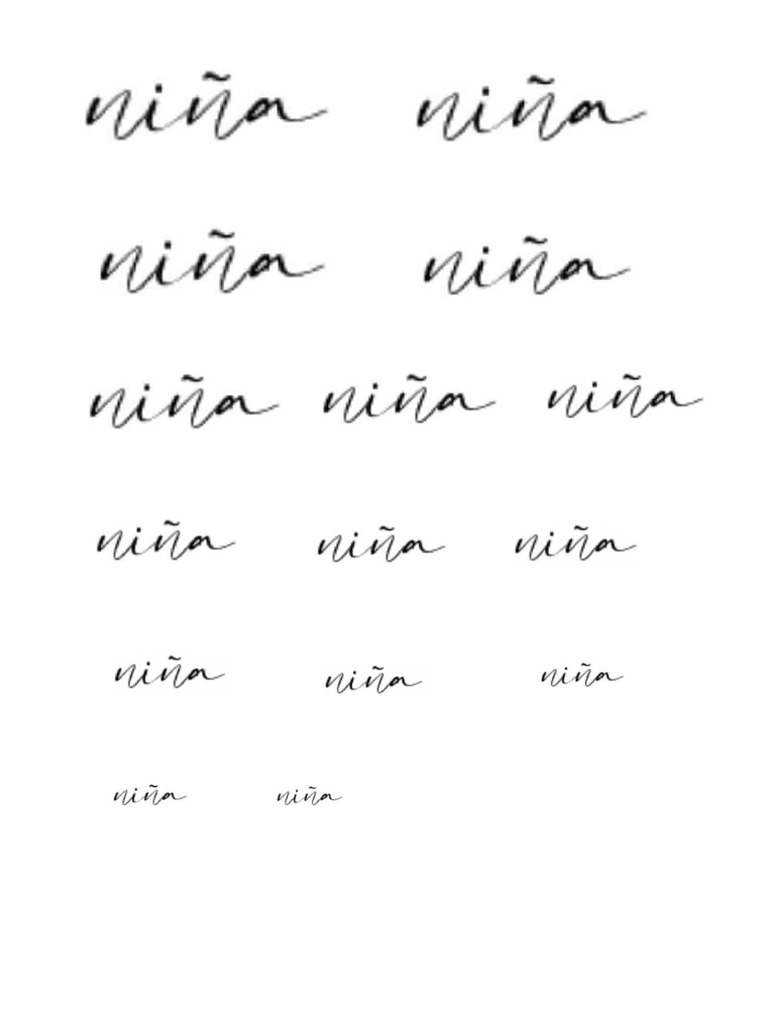 niña niña
niña niña
niña niña niña
niña niña niña
niña niña niña
niña niña